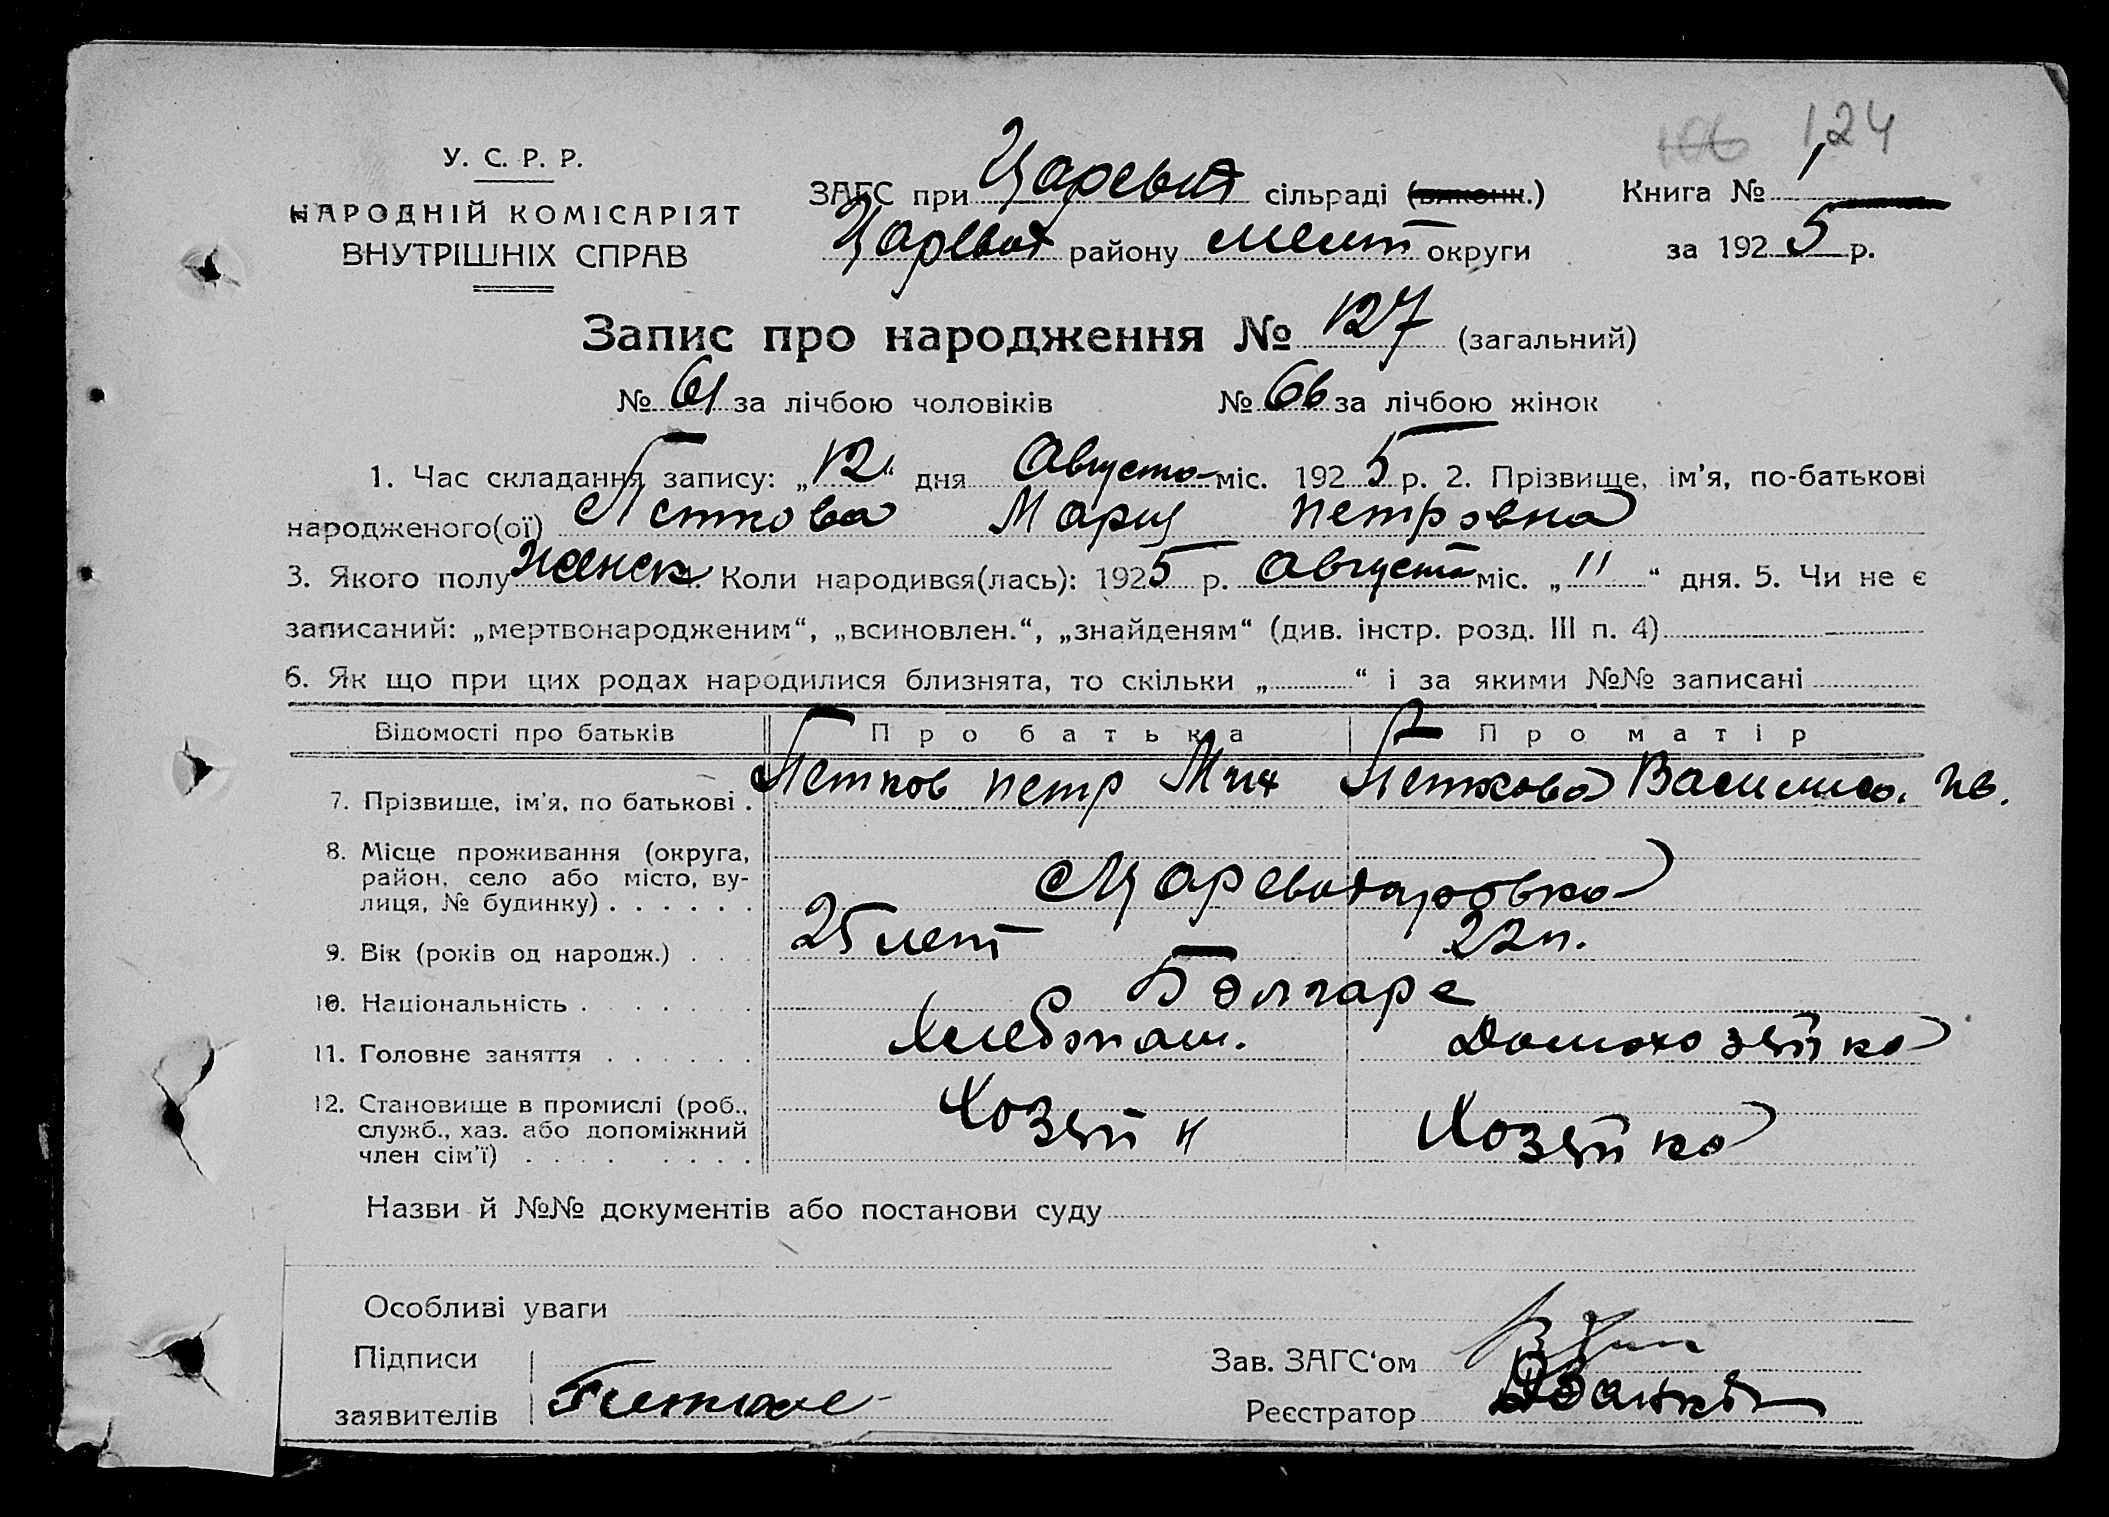 124
У. С. Р. Р.
НАРОДНІЙ КОМІСАРІЯТ
ВНУТРІШНІХ СПРАВ
ЗАГС при Царевод сільраді (виконк.) Книга № 1
Царевод району Мелит округи за 1925 р.
Запис про народження № 127 (загальний)
№ 61 за лічбою чоловіків № 66 за лічбою жінок
1. Час складання запису: „12“ дня Августа міс. 1925 р. 2. Прізвище, ім'я, по-батькові
народженого(ої) Петкова Мария Петровна
3. Якого полу женск Коли народився(лась): 1925 р. Август міс. „11“ дня. 5. Чи не є
записаний: „мертвонародженим“, „всиновлен.“, „знайденям“ (див. інстр. розд. III п. 4)
6. Як що при цих родах народилися близнята, то скільки „ “ і за якими №№ записані
Відомості про батьків Про батька Про матір
7. Прізвище, ім'я, по батькові . Петков Петр Мих Петкова Василиса. Ив.
8. Місце проживання (округа,
район, село або місто, ву-
лиця, № будинку) . . . . . . с Цареводаровка
9. Вік (років од народж.) . . . 25 лет 22 л.
10. Національність . . . . . . Болгаре
11. Головне заняття . . . . . . Хлебопаш. Домохозяйка
12. Становище в промислі (роб.,
служб., хаз. або допоміжний
член сім'ї) . . . . . . . . Хозяйн Хозяйка
Назви й №№ документів або постанови суду
Особливі уваги
Підписи
заявителів
Зав. ЗАГС'ом
Реєстратор